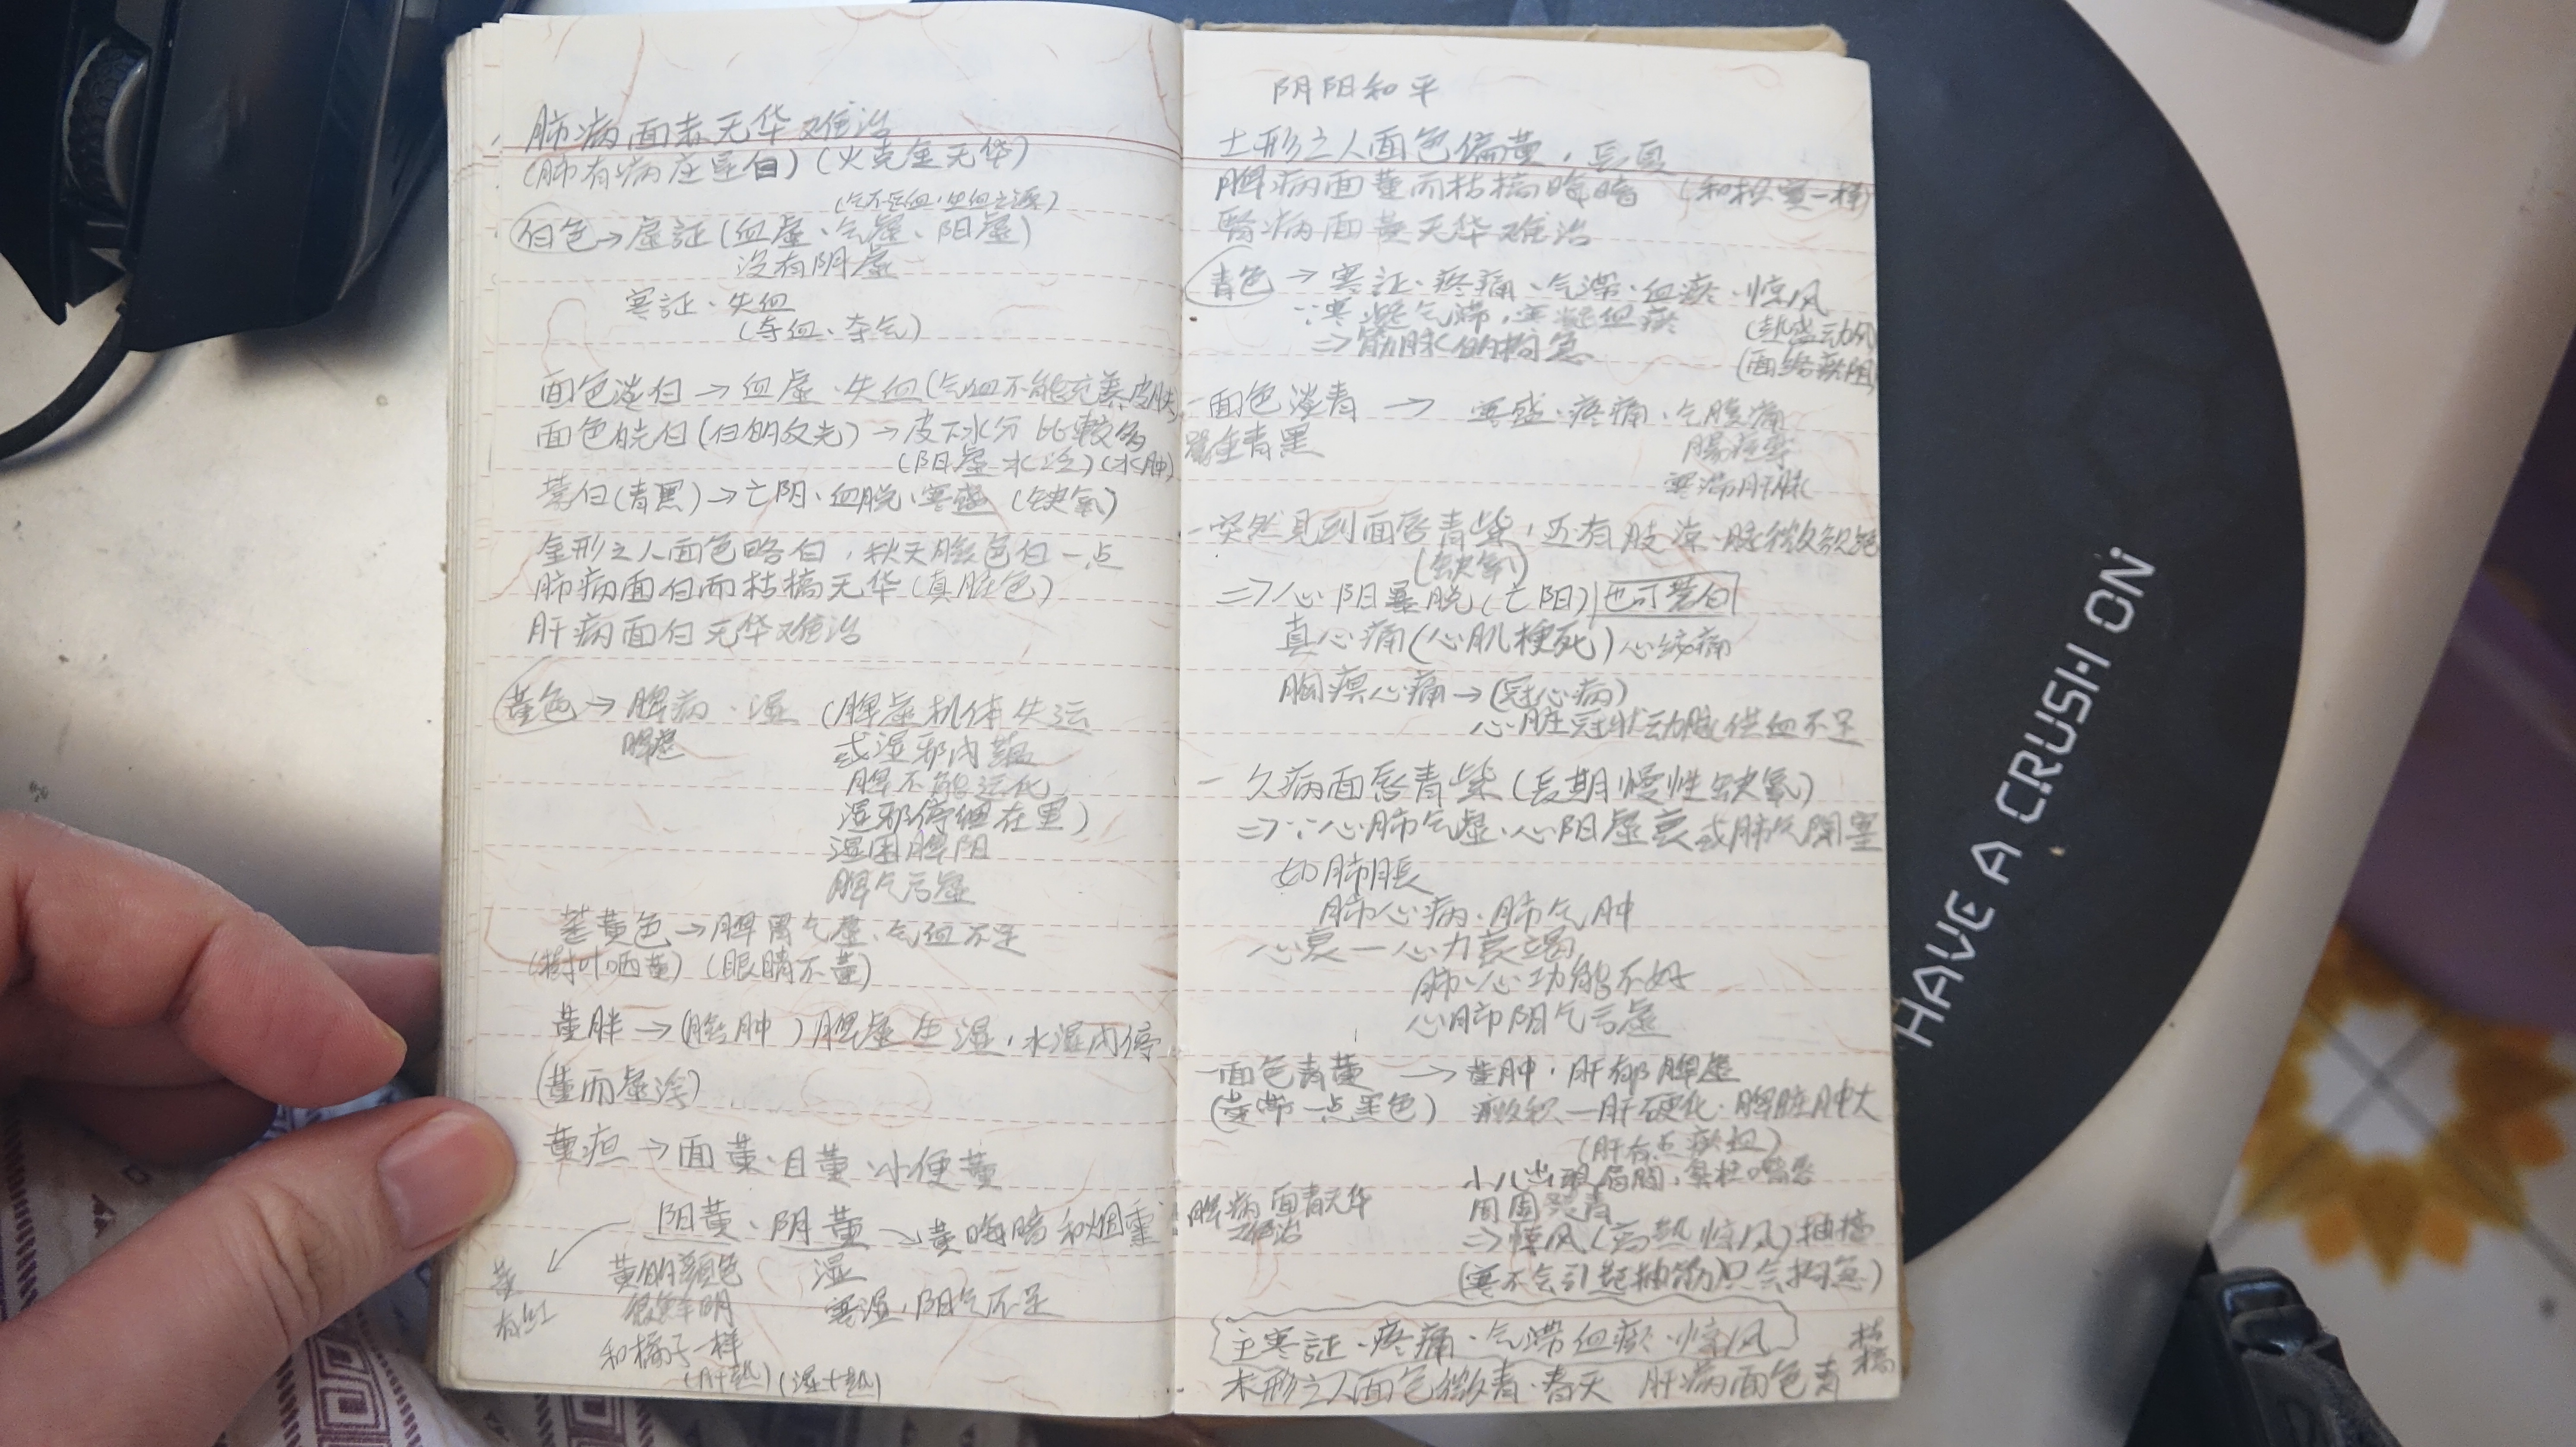 肺病面赤无华难治
(肺有病应呈白)(火克金无华)
(气不足血,生血之源)
白色→虚証(血虚、气虚、阳虚)
没有阴虚
寒証、失血
(夺血、夺气)
面色淡白→血虚、失血(气血不能充养皮肤)
面色㿠白(白的反光)→皮下水分比較多
(阳虚水泛)(水肿)
苍白(青黑)→亡阴、血脱、寒盛(缺氧)
金形之人面色略白,秋天脸色白一点
肺病面白而枯槁无华(真脏色)
肝病面白无华难治
黃色→脾病、湿(脾虚机体失运
脾虚
或湿邪内蕴
脾不能运化
湿邪停细在里)
湿困脾阳
脾气亏虚
萎黃色→脾胃气虚、气血不足
(樹叶晒黃)(眼睛不黃)
黃胖→(脸肿)脾虚生湿,水湿内停
(黃而虚浮)
黃疸→面黃、目黃、小便黃
阳黃、阴黃→黃晦暗和烟熏
黃有红
黃的顏色
很鮮明
和橘子一样
(肝热)(湿+热)
湿
寒湿,阳气不足
阴阳和平
土形之人面色偏黃,長夏
脾病面黃而枯槁晦暗(和枳實一样)
腎病面黃无华难治
青色→寒証、疼痛、气滞、血瘀、惊风
∵寒凝气滞,寒凝血瘀
(热盛动风)
⇒筋脉的拘急
(面络瘀阻)
一面色淡青→寒盛、疼痛、气腹痛
發生青黑
腸痙挛
寒滞肝脉
一突然見到面唇青紫,还有肢凉、脉微欲绝
(缺氧)
⇒心阳暴脱(亡阳)也可苍白
真心痛(心肌梗死)心绞痛
胸痹心痛→(冠心病)
心脏冠状动脉供血不足
一久病面唇青紫(長期慢性缺氧)
⇒∵心肺气虚、心阳虚衰或肺气闭塞
如肺脹
肺心病、肺气肿
心衰一心力衰竭
肺、心功能不好
心肺阴气亏虚
一面色青黃→黃肿、肝郁脾虚
(黃带一点黑色)
癥积一肝硬化、脾脏肿大
(肝有点瘀血)
小儿出現眉間、鼻柱、嘴唇
周圍發青
脾病面青无华
难治
⇒惊风(高热惊风)抽搐
(寒不会引起抽筋)只会拘急)
主寒証、疼痛、气滞血瘀、惊风
木形之人面色微青、春天 肝病面色青
枯槁
HAVE A CRUSH ON